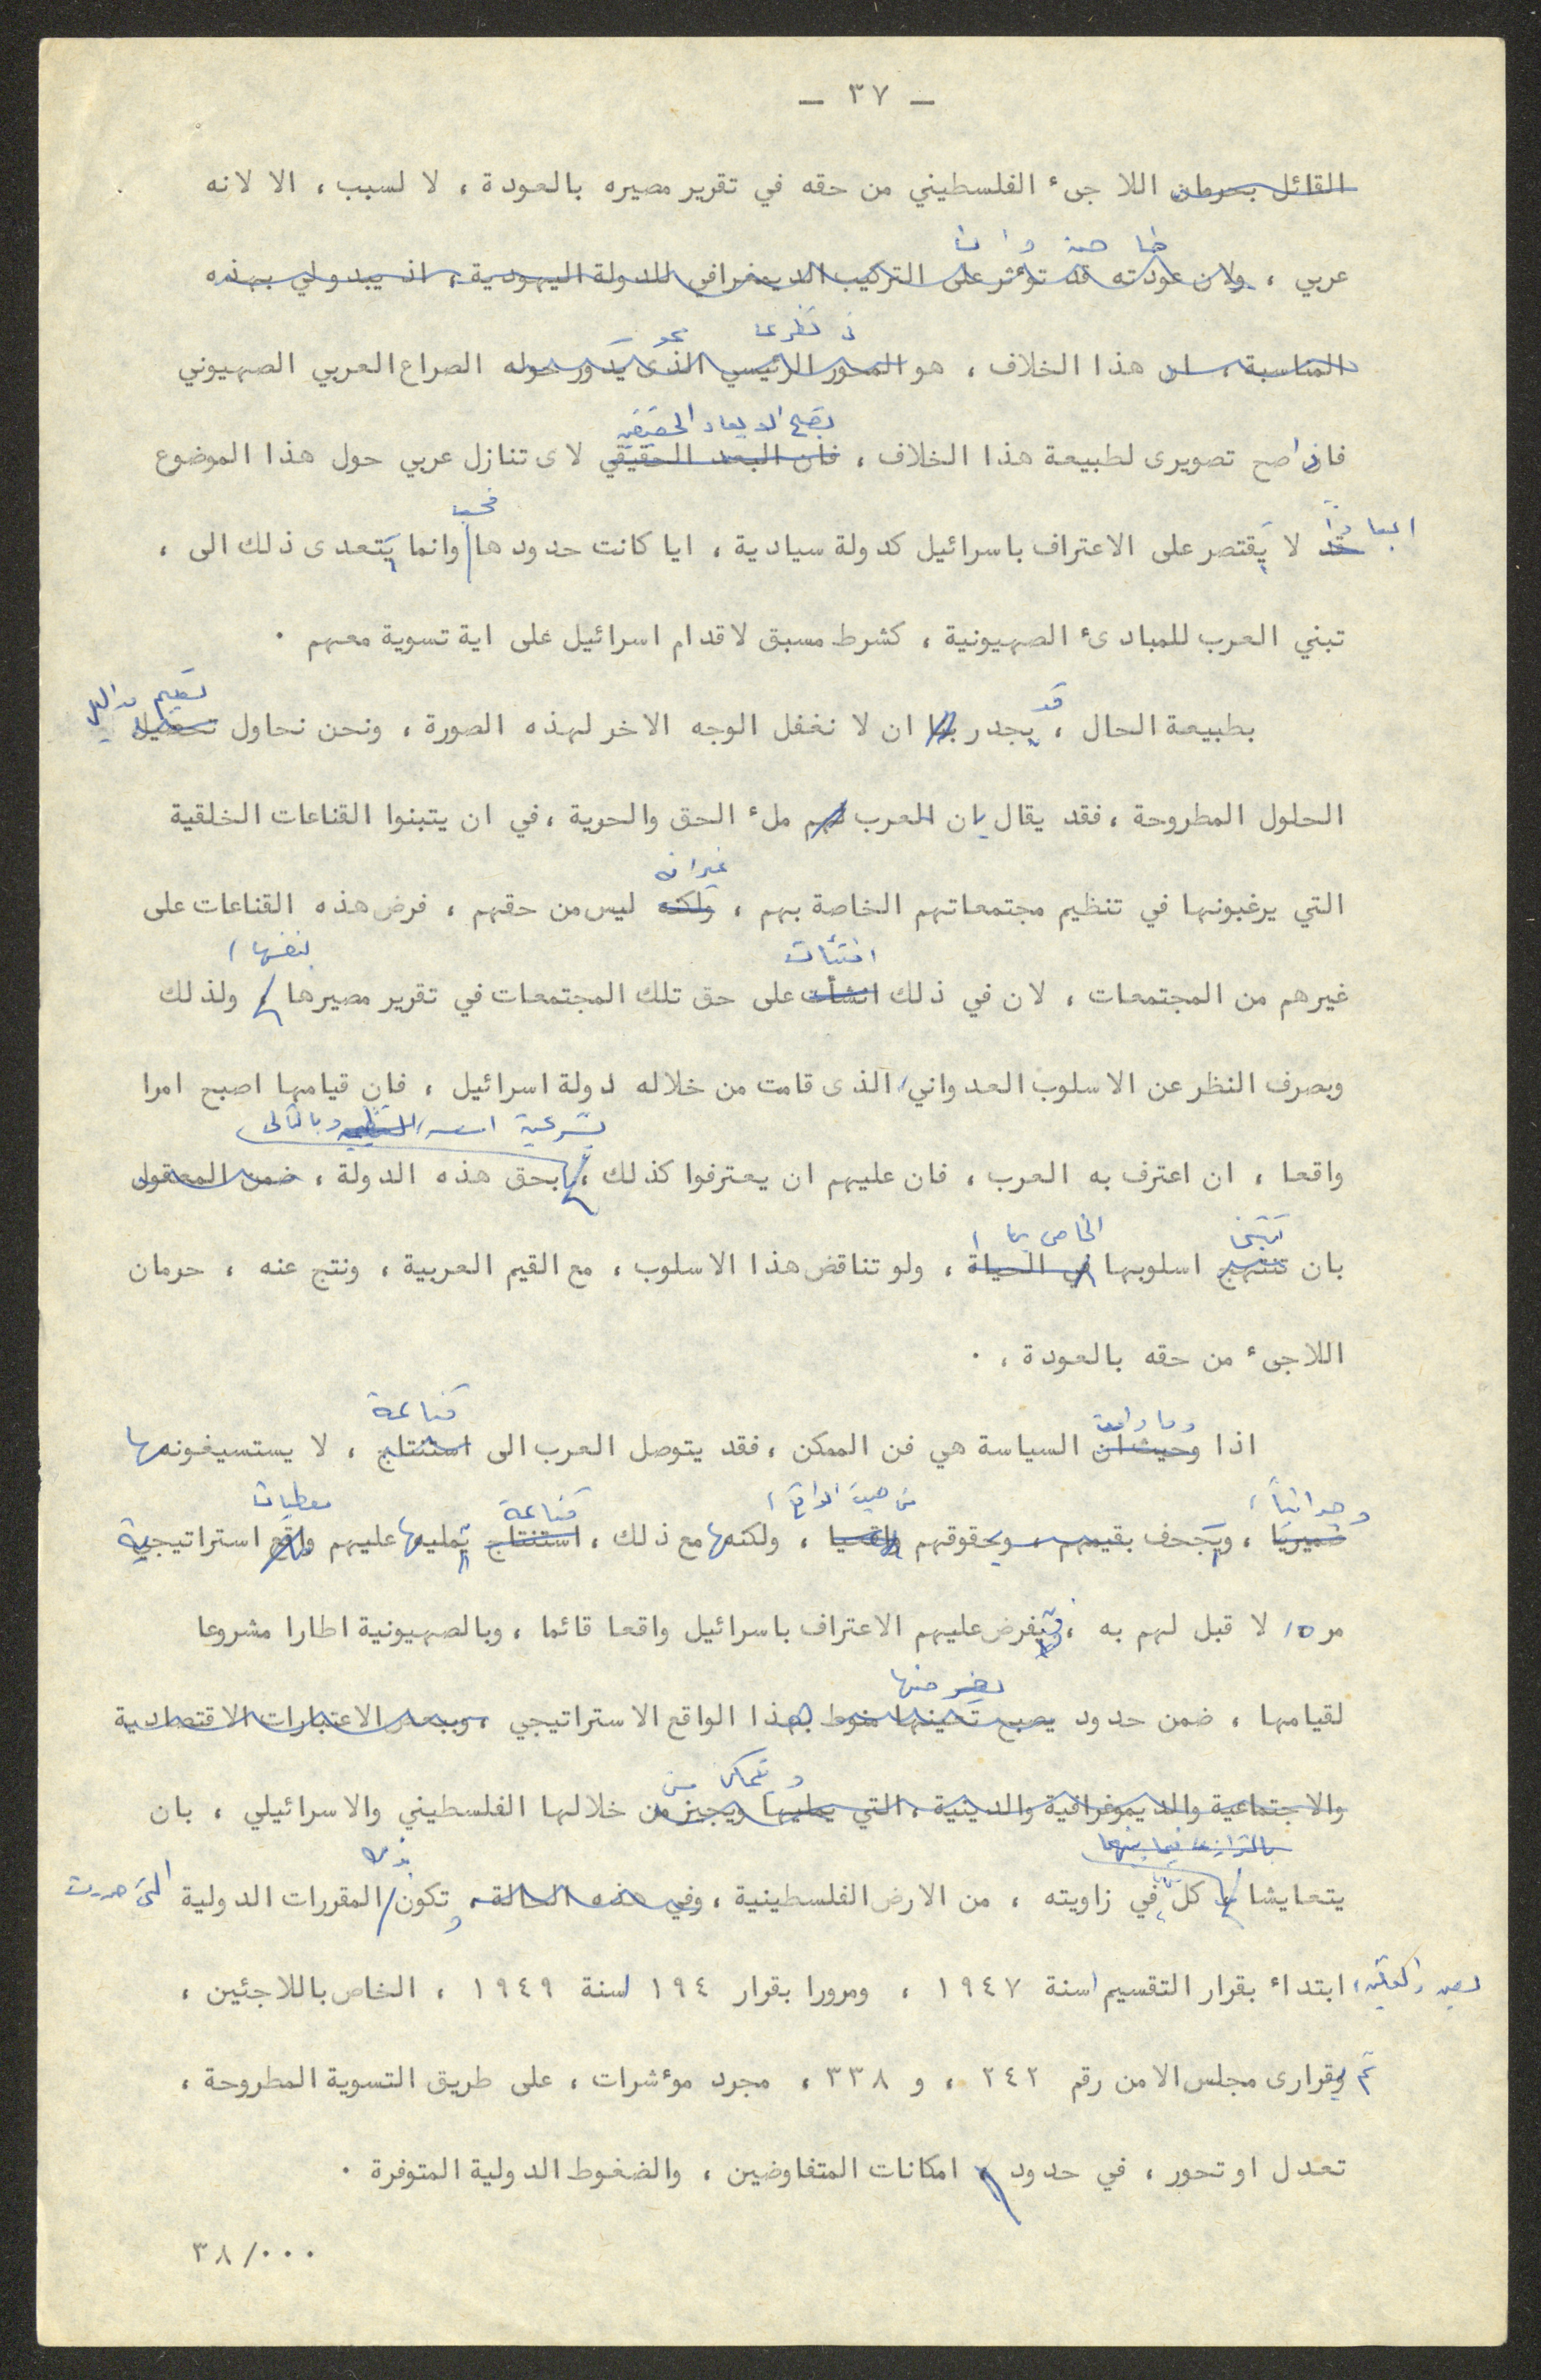 – ٣٧ –
القائل بحرمان اللاجىء الفلسطيني من حقه في تقرير مصيره بالعودة ، لا لسبب ، الا لانه
خاصة وان
عربي ، ولان عودته قد توٴثر على التركيب الديمغرافي للدولة اليهودية ، اذ يبدو لي بهذه
في نظري محور
المناسبة ، ان هذا الخلاف ، هو المحور الرئيسي الذى يدور حوله الصراع العربي الصهيوني
تصبح الابعاد الحقيقية
فاذا صح تصويرى لطبيعة هذا الخلاف ، فان البعد الحقيقي لاى تنازل عربي حول هذا الموضوع
ابعادا فحسب
قد لا يقتصر على الاعتراف باسرائيل كدولة سيادية ، ايا كانت حدودها وانما يتعدى ذلك الى ،
تبني العرب للمبادىء الصهيونية ، كشرط مسبق لاقدام اسرائيل على اية تسوية معهم .
قد تقييم
بطبيعة الحال ، يجدر بنا ان لا نغفل الوجه الاخر لهذه الصورة ، ونحن نحاول تحليل
الحلول المطروحة ، فقد يقال بان للعرب لهم ملء الحق والحرية ، في ان يتبنوا القناعات الخلقية
غير انه
التي يرغبونها في تنظيم مجتمعاتهم الخاصة بهم ، ولكنه ليس من حقهم ، فرض هذه القناعات على
افتئات بنفسها ،
غيرهم من المجتمعات ، لان في ذلك انشأت على حق تلك المجتمعات في تقرير مصيرها ، ولذلك
وبصرف النظر عن الاسلوب العدواني الذى قامت من خلاله دولة اسرائيل ، فان قيامها اصبح امرا
بشرعية وبالتالي
واقعا ، ان اعترف به العرب ، فان عليهم ان يعترفوا كذلك ، بحق هذه الدولة ، ضمن المعقول
تتبنى الخاص بها ،
بان تنتهج اسلوبها في الحياة ، ولو تناقض هذا الاسلوب ، مع القيم العربية ، ونتج عنه ، حرمان
اللاجىء من حقه بالعودة ، .
وما دامت قناعة
اذا وحيث ان السياسة هي فن الممكن ، فقد يتوصل العرب الى استنتاج ، لا يستسيغونها
وجدانيا ، من حيث الواقع ، قناعة معطيات
ضميريا ، ويجحف بقيمهم ، وبحقوقهم واقعيا ، ولكنها مع ذلك ، استنتاج تمليها عليهم واقع استراتيجية
مرة لا قبل لهم به ، وتفرض عليهم الاعتراف باسرائيل واقعا قائما ، وبالصهيونية اطارا مشروعا
يفرضها
لقيامها ، ضمن حدود يصبح تحينها منوط بهذا الواقع الاستراتيجي ، وببعض الاعتبارات الاقتصادية
وتمكن من
والاجتماعية والديموغرافية والدينية ، التي يمليها ويجيز من خلالها الفلسطيني والاسرائيلي ، بان
بالتراضي فيما بينهما
بذلك
يتعايشا ، كل في زاويته ، من الارض الفلسطينية ، وفي هذه الحالة ، وتكون المقررات الدولية التي صدرت
ابتداء بقرار التقسيم لسنة ١٩٤٧ ، ومرورا بقرار ١٩٤ لسنة ١٩٤٩ ، الخاص باللاجئين ،
ثم بقرارى مجلس الامن رقم ٢٤٢ ، و ٣٣٨ ، مجرد موٴشرات ، على طريق التسوية المطروحة ،
تعدل او تحور ، في حدود امكانات المتفاوضين ، والضغوط الدولية المتوفرة .
٣٨/٠٠٠